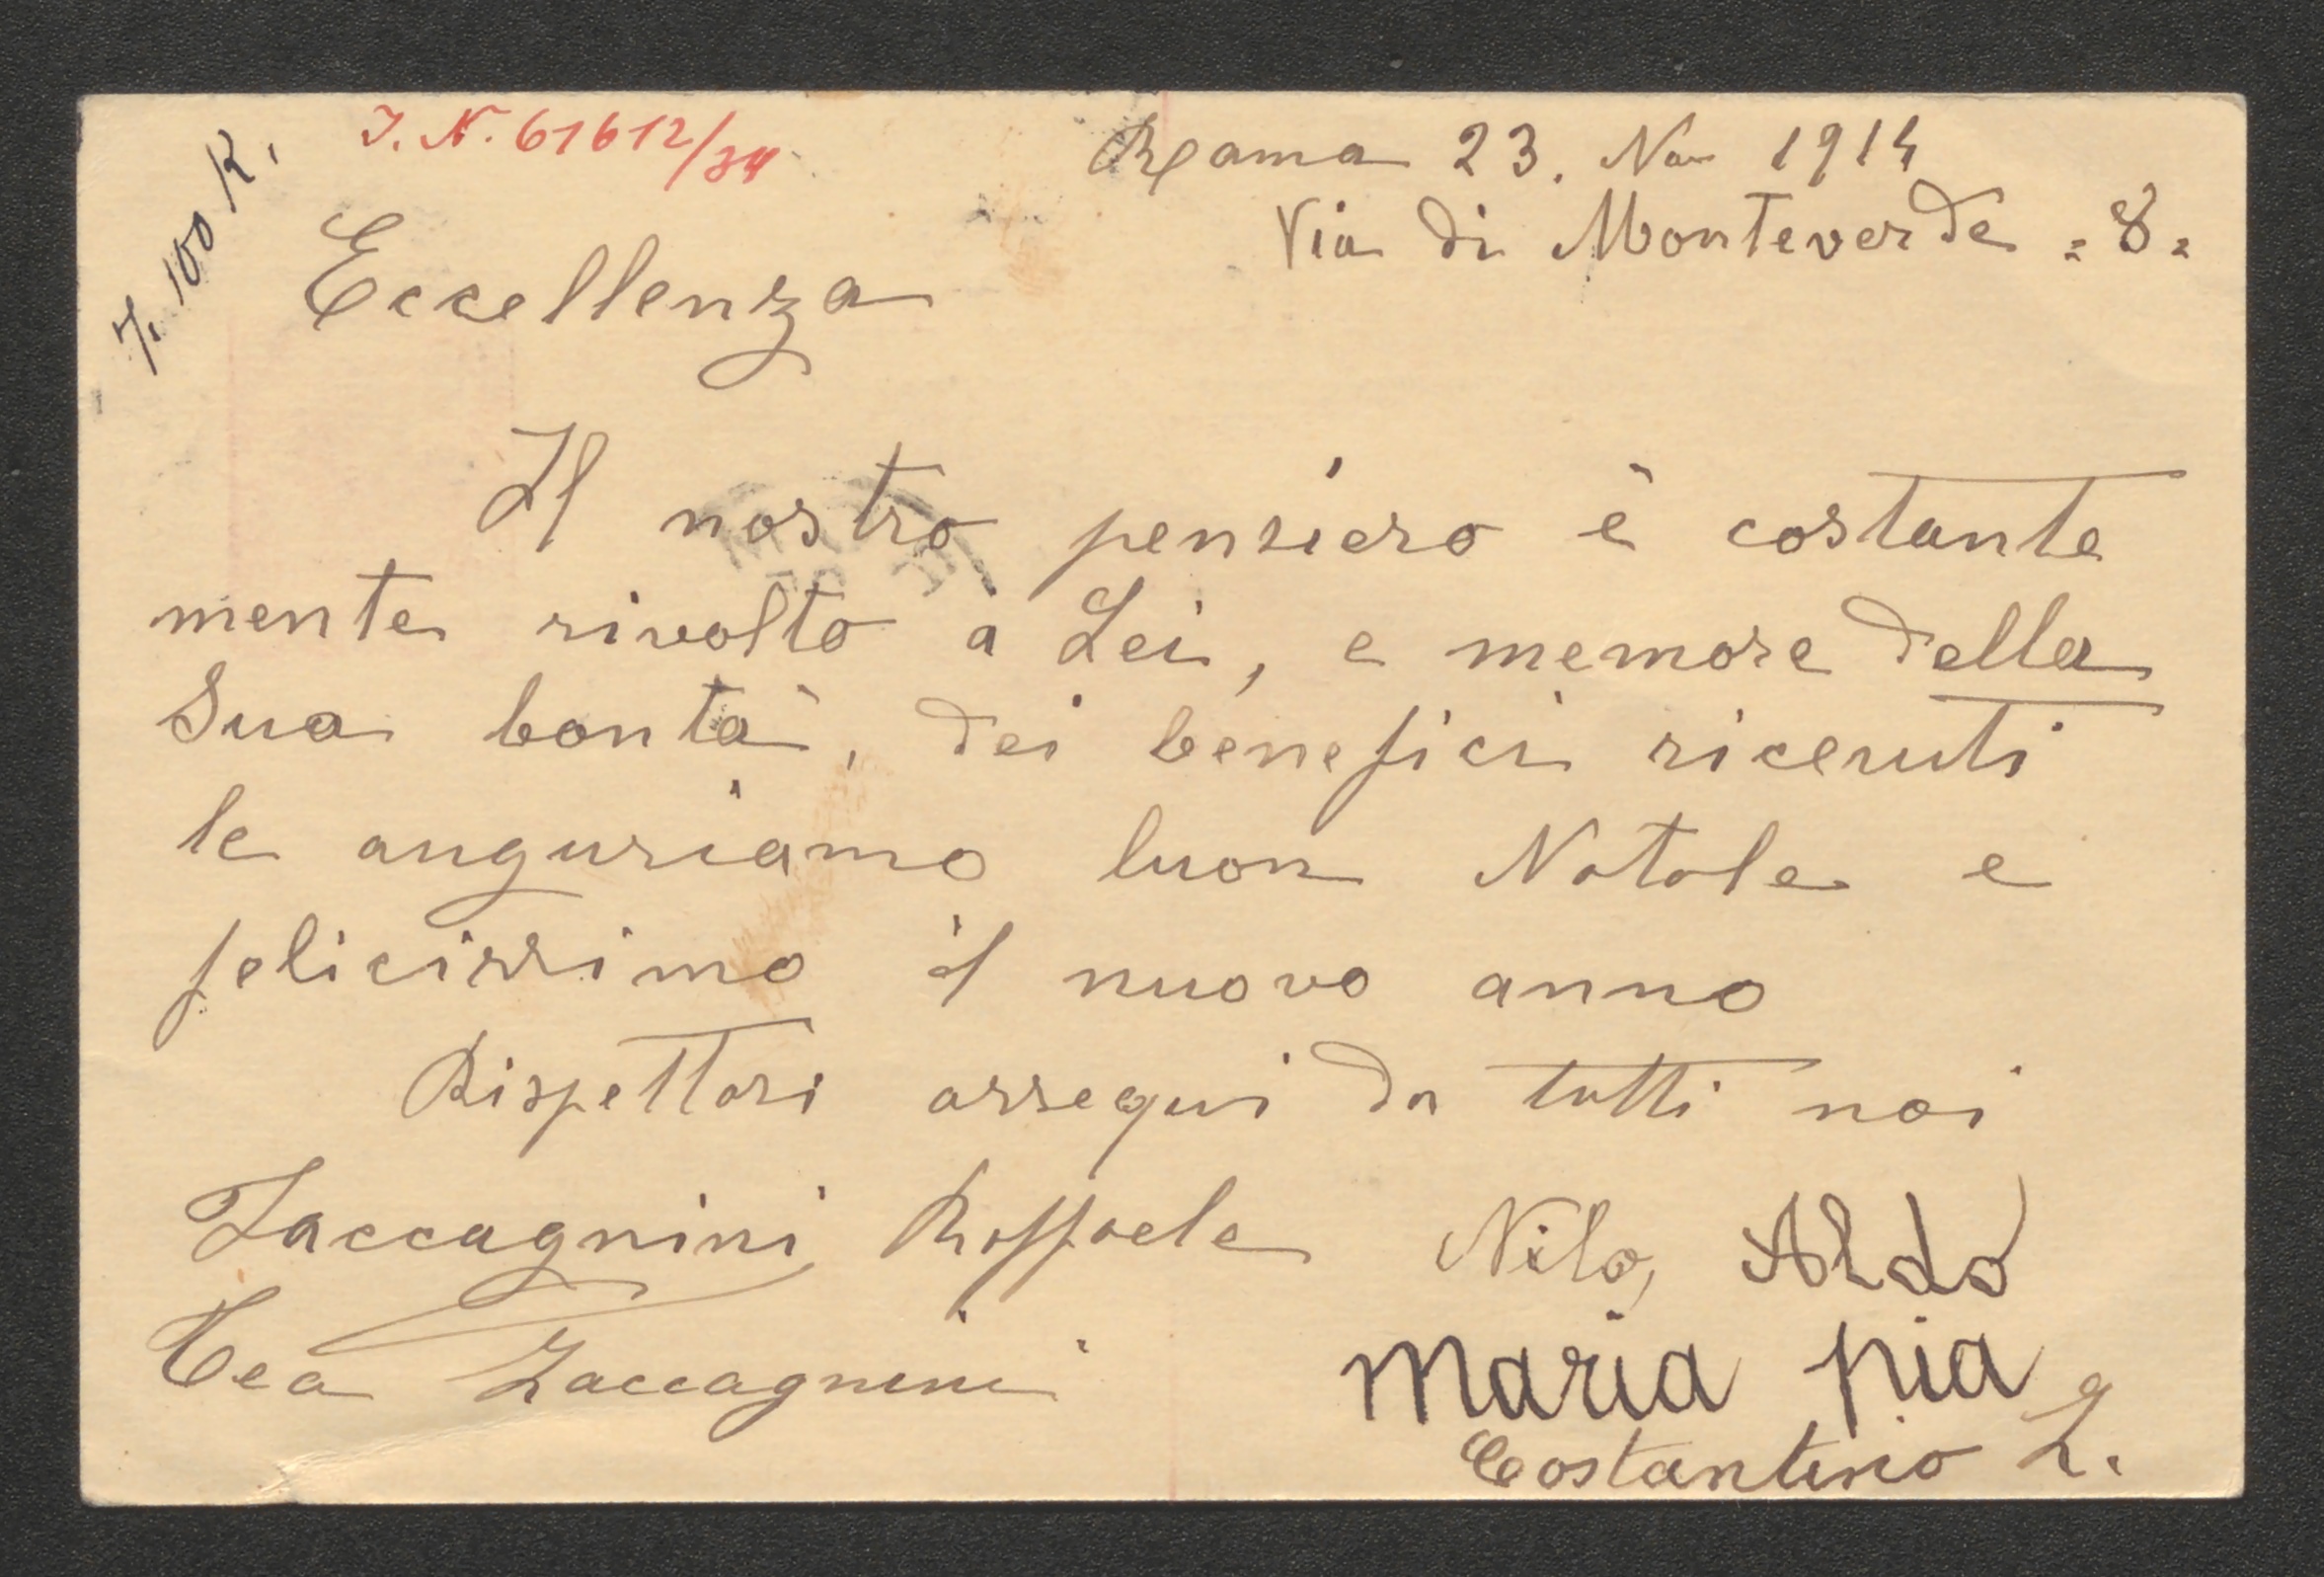 I. N. 61612/34
7. 100 K.
Roma 23. Nov 1914
Via di Monteverde = 8 =
Eccellenza
Il nostro pensiero è costante
mente rivolto a Lei, e memore della
Sua bontà, dei benefici ricevuti
le auguriamo buon Natale e
felicissimo il nuovo anno
Rispettosi ossequi da tutti noi
Zaccagnini Raffaele Nilo, Aldo
Tea Zaccagnini maria pia
Costantino Z.